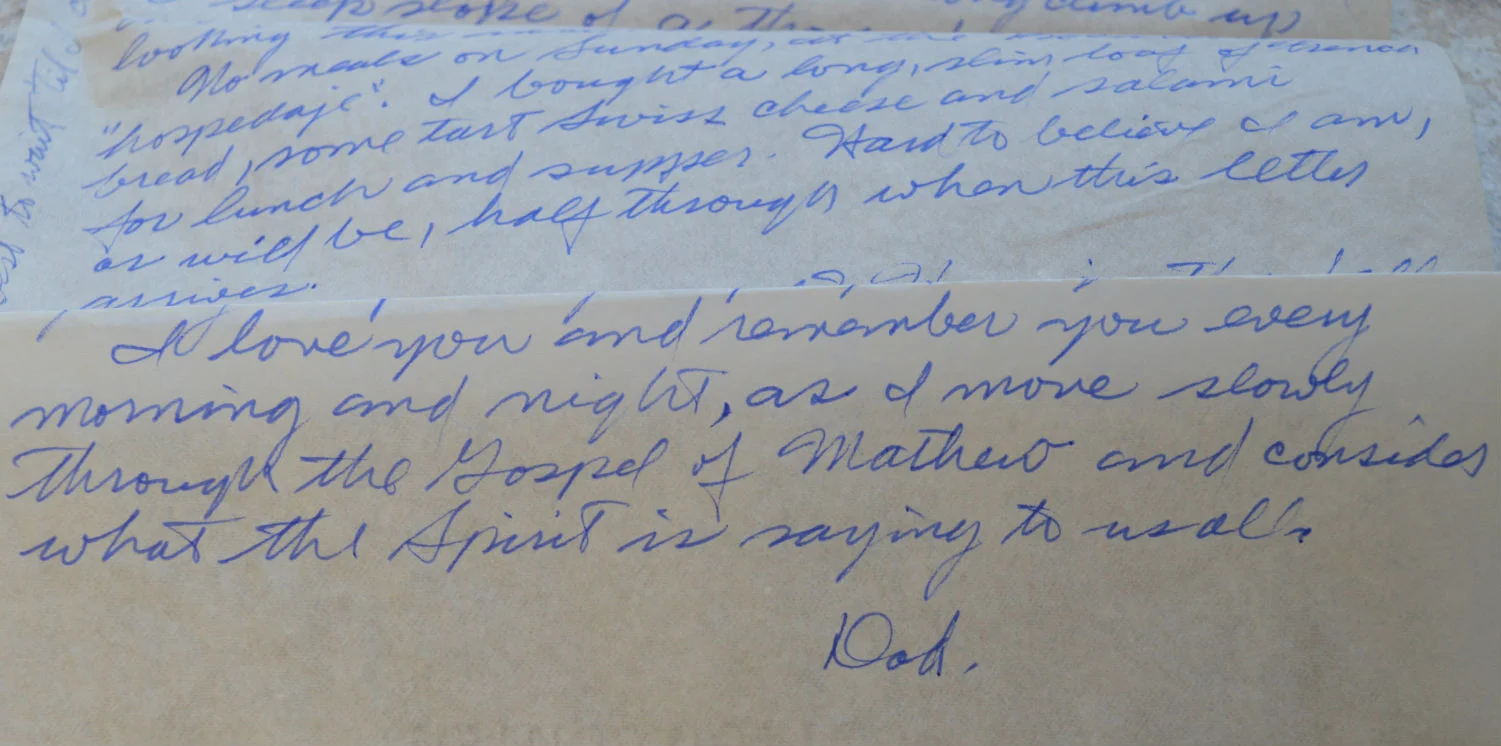 steep slope of a climb up
looking this
No meals on Sunday, at
"hospedaje". I bought a long, slim loaf of french
bread, some tart Swiss cheese and salami
for lunch and supper. Hard to believe I am,
or will be, half through when this letter
arrives.
I love you and remember you every
morning and night, as I move slowly
through the Gospel of Mathew and consider
what the Spirit is saying to us all.
Dad.
to wait til